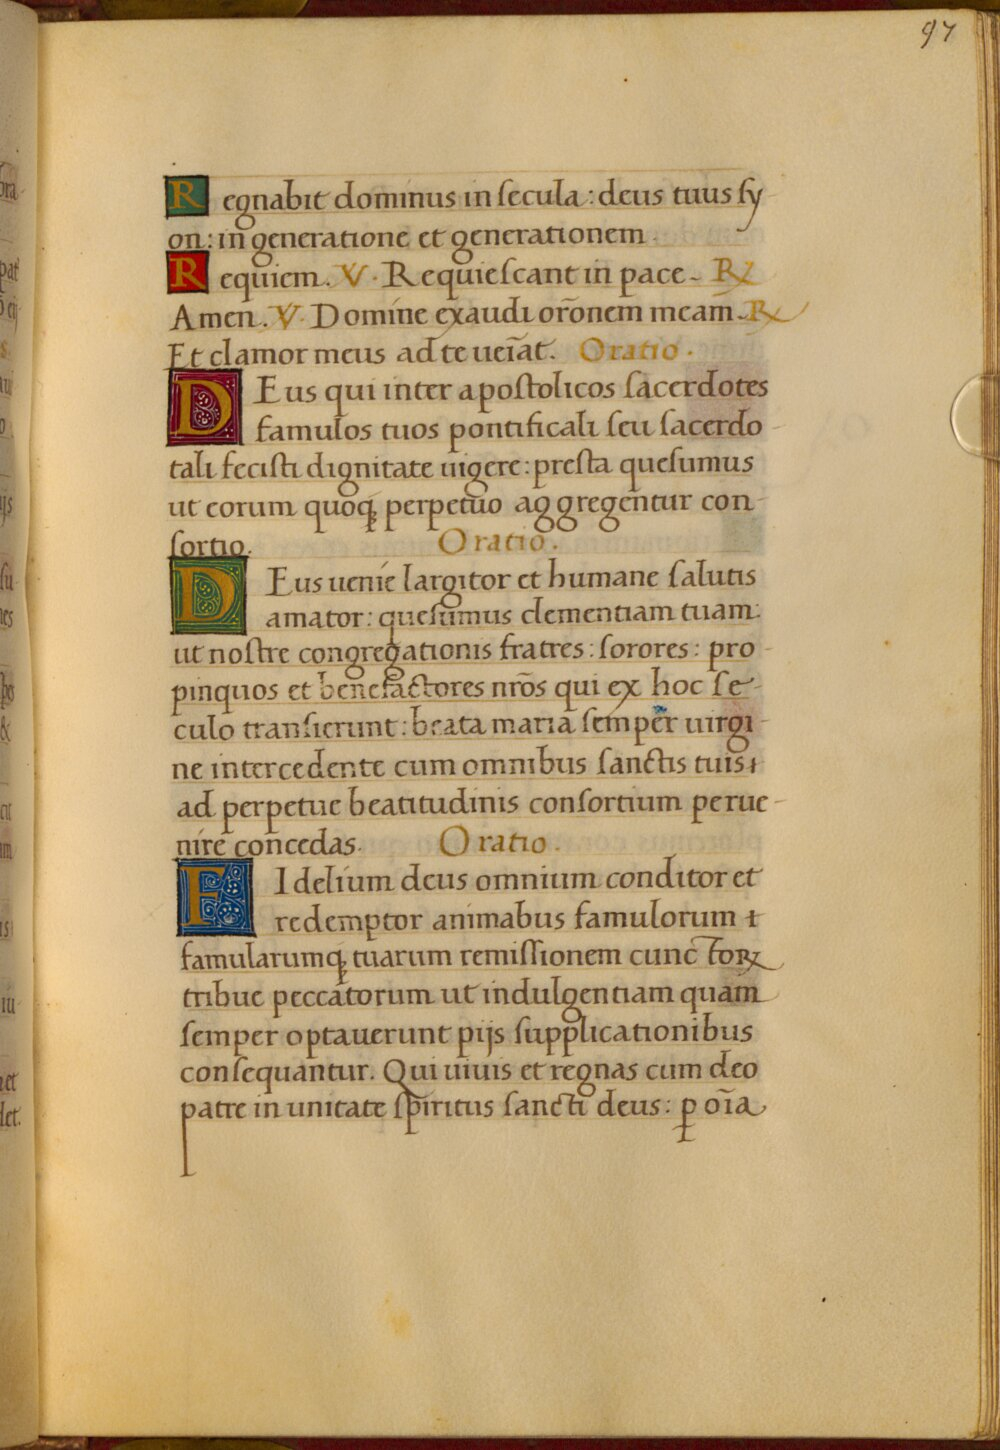 97
Regnabit dominus in secula: deus tuus sy-
on: in generatione et generationem.
Requiem. V. Requiescant in pace. R
Amen. V. Domine exaudi orõnem meam. R
Et clamor meus ad te ueiãt. Oratio.
DEus qui inter apostolicos sacerdotes
famulos tuos pontificali seu sacerdo-
tali fecisti dignitate uigere: presta quesumus
ut eorum quoqꝫ perpetuo aggregentur con-
sortio. Oratio.
DEus uenie largitor et humane salutis
amator: quesumus clementiam tuam:
ut nostre congregationis fratres: sorores: pro-
pinquos et benefactores nrõs qui ex hoc se-
culo transierunt: beata maria semper uirgi-
ne intercedente cum omnibus sanctis tuis ⁊
ad perpetue beatitudinis consortium perue-
nire concedas. Oratio.
FIdelium deus omnium conditor et
redemptor animabus famulorum ⁊
famularumqꝫ tuarum remissionem cunctoꝝ
tribue peccatorum ut indulgentiam quam
semper optauerunt pijs supplicationibus
consequantur. Qui uiuis et regnas cum deo
patre in unitate spiritus sancti deus: ꝑ oĩa